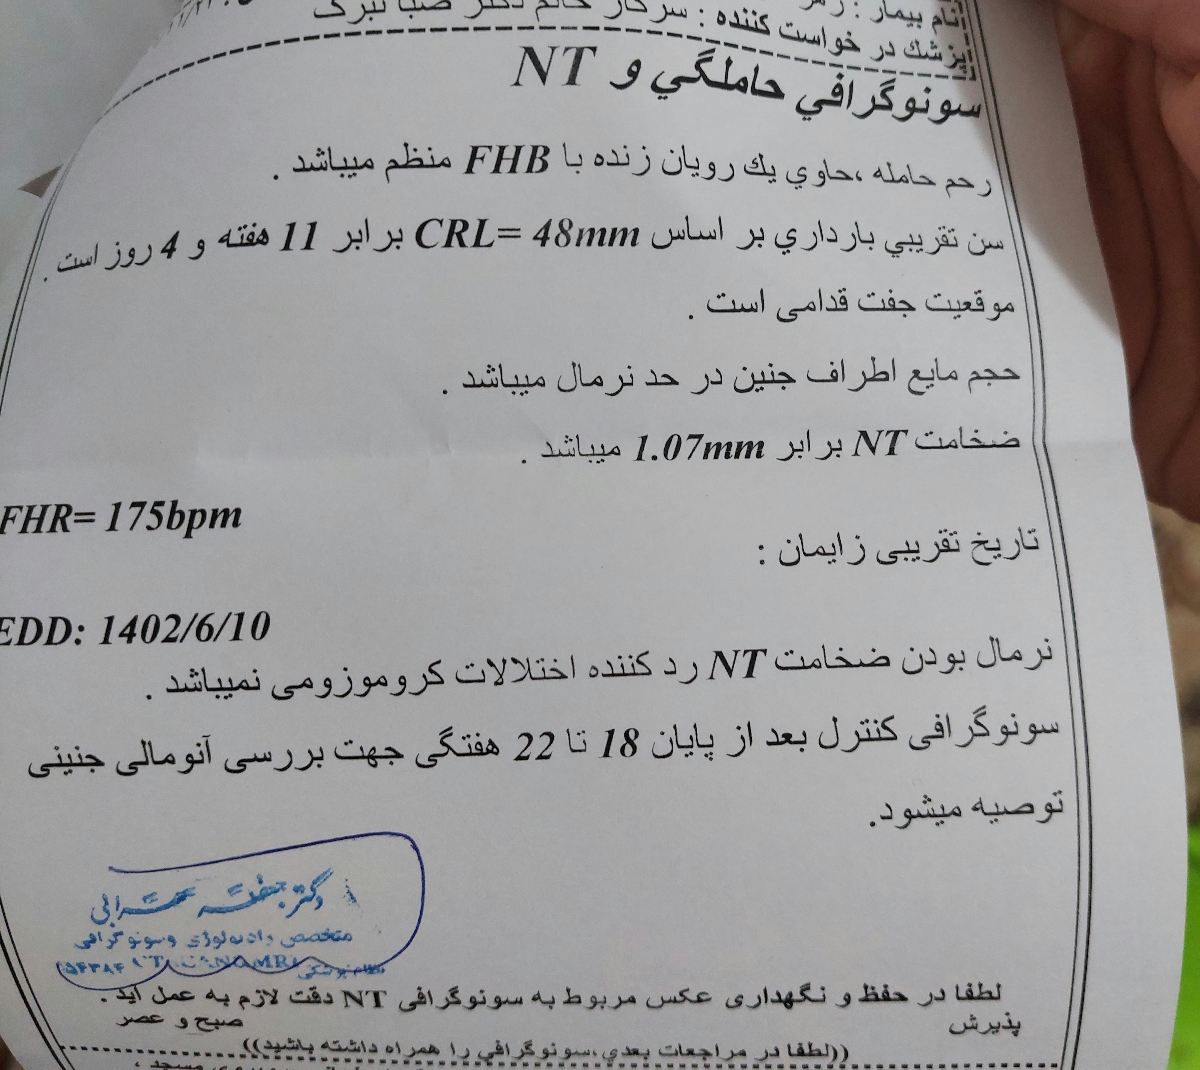 نام بيمار :
پزشك در خواست كننده : سركار خانم دكتر صبا
سونوگرافي حاملگي و NT
رحم حامله ،حاوي يك رويان زنده با FHB منظم ميباشد .
سن تقريبي بارداري بر اساس CRL= 48mm برابر 11 هفته و 4 روز است .
موقعيت جفت قدامی است .
حجم مايع اطراف جنين در حد نرمال ميباشد .
ضخامت NT برابر 1.07mm ميباشد .
FHR= 175bpm
تاريخ تقريبی زايمان :
EDD: 1402/6/10
نرمال بودن ضخامت NT رد كننده اختلالات كروموزومی نميباشد .
سونوگرافی كنترل بعد از پايان 18 تا 22 هفتگی جهت بررسی آنومالی جنينی
توصيه ميشود.
دکتر
متخصص رادیولوژی و سونوگرافی
نظام پزشکی
لطفا در حفظ و نگهداری عكس مربوط به سونوگرافی NT دقت لازم به عمل آيد .
پذيرش صبح و عصر
((لطفا در مراجعات بعدي،سونوگرافي را همراه داشته باشيد))